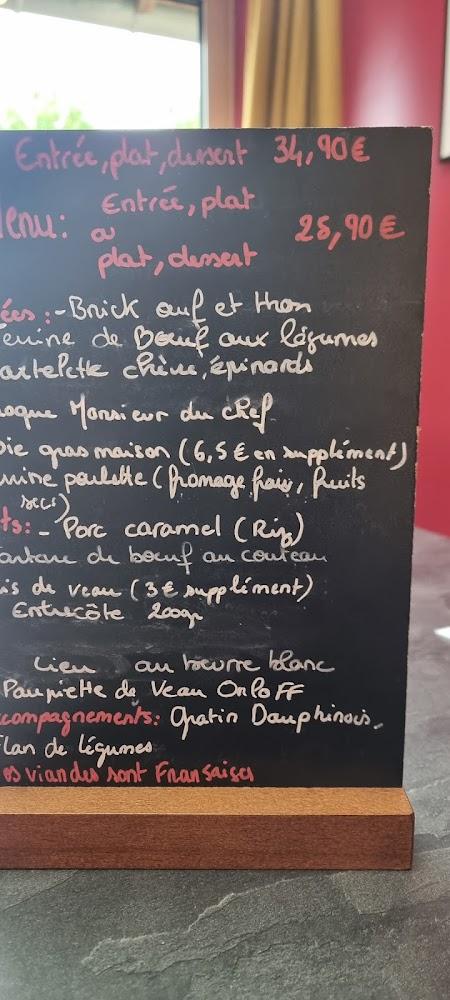 Entrée, plat, dessert 34,90€
Entrée, plat
enu: ou 25,90€
plat, dessert
ées: - Brick œuf et thon
errine de Bœuf aux légumes
artelette chèvre, épinards
roque Monsieur du chef
oie gras maison (6,5€ en supplément)
uine poulette (fromage frais, fruits
secs)
ts: - Porc caramel (Riz)
artare de bœuf au couteau
is de veau (3€ supplément)
Entrecôte 200gr
Lieu au beurre blanc
Paupiette de Veau Orloff
ccompagnements: Gratin Dauphinois.
Flan de légumes
os viandes sont Françaises